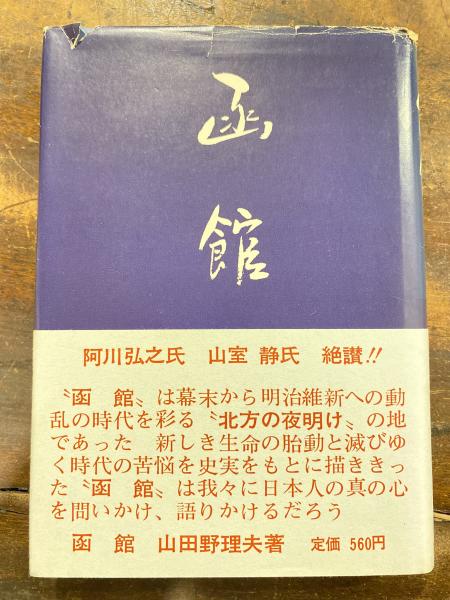 函
館
阿川弘之氏　山室 静氏　絶讃!!
〝函　館〟は幕末から明治維新への動
乱の時代を彩る〝北方の夜明け〟の地
であった　新しき生命の胎動と滅びゆ
く時代の苦悩を史実をもとに描ききっ
た〝函　館〟は我々に日本人の真の心
を問いかけ、語りかけるだろう
函　館　山田野理夫著　定価 560円